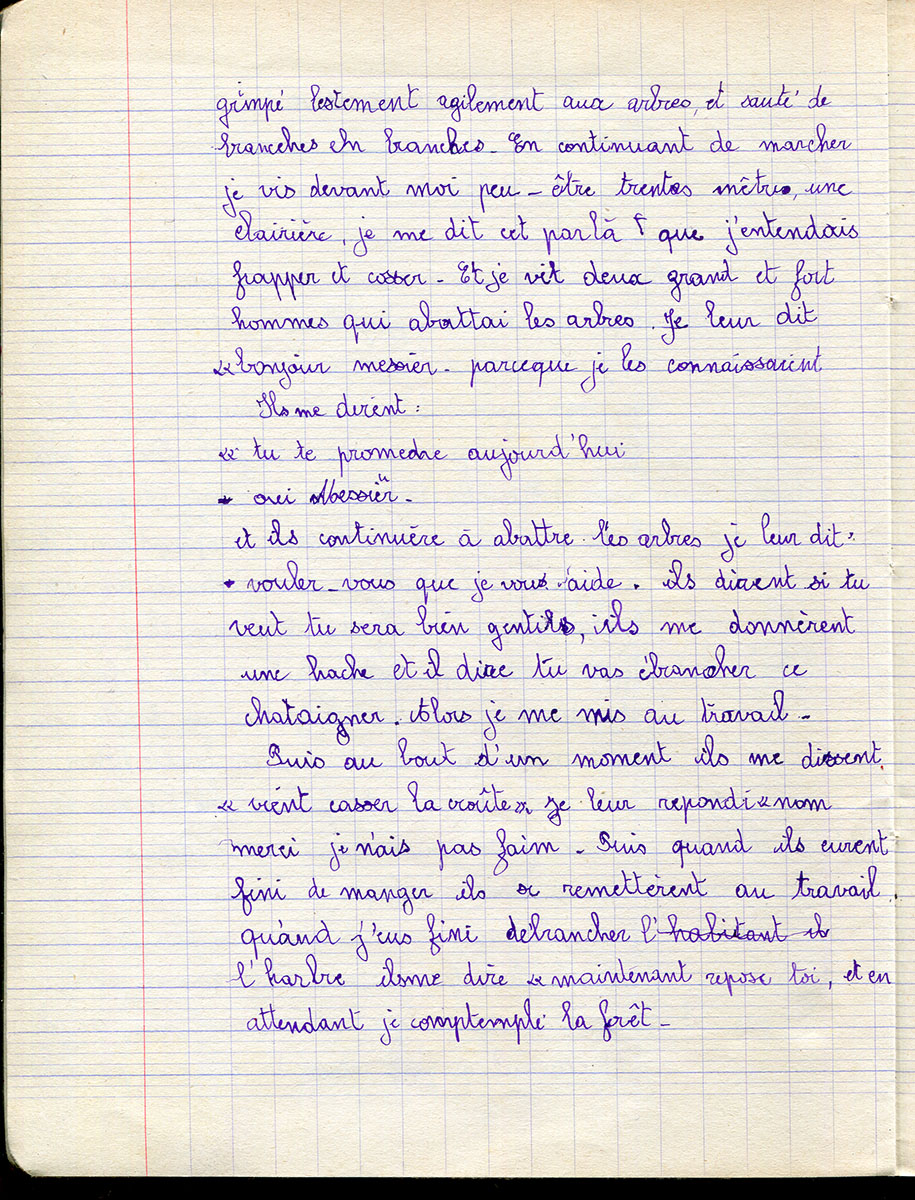 grimpé lestement agilement aux arbres, et sauté de
branches en branches. En continuant de marcher
je vis devant moi peu-être trentes mètres, une
clairière, je me dit cet par là que j'entendais
frapper et casser. Et je vit deux grand et fort
hommes qui abattai les arbres. Je leur dit
« bonjour messier. parceque je les connaissaient
Ils me dirent :
« tu te promedne aujourd'hui
- oui Messier".
et ils continuère à abattre les arbres je leur dit:
- vouler-vous que je vous aide. ils dirent si tu
veut tu sera bien gentils, ils me donnèrent
une hache et il dire tu vas ébrancher ce
chataigner. Alors je me mis au travail.
Puis au bout d'un moment ils me dirent.
« vient casser la croûte » je leur repondi « nom
merci je n'ais pas faim. Puis quand ils eurent
fini de manger ils se remettèrent au travail.
quand j'eus fini débrancher l'habitant ils
l'harbre ils me dire « maintenant repose toi, et en
attendant je comptemplé la forêt.